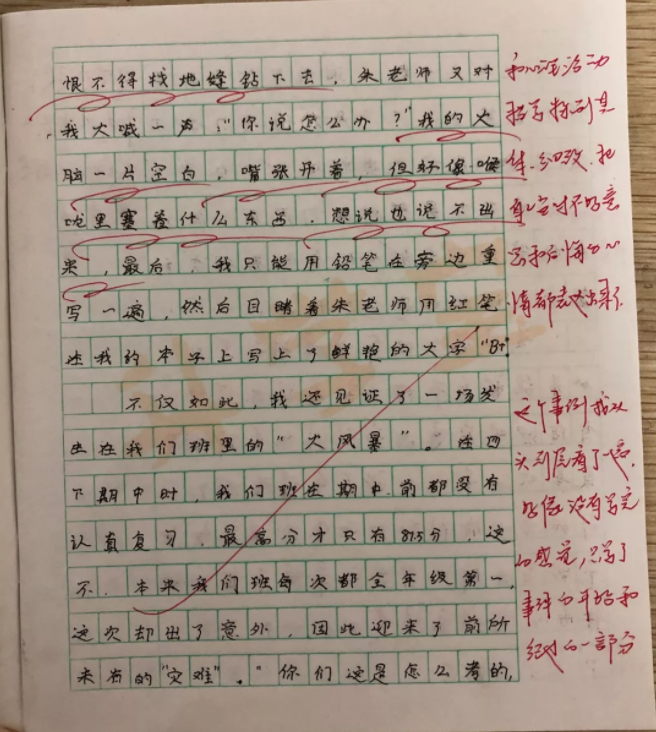 恨不得找地缝钻下去，朱老师又对
我大喊一声：“你说怎么办？”我的大
脑一片空白，嘴张开着，但好像喉
咙里塞着什么东西，想说也说不出
来，最后，我只能用铅笔在旁边重
写一遍，然后目睹着朱老师用红笔
在我的本子上写上了鲜艳的大字“B+”
不仅如此，我还见证了一场发
生在我们班里的“大风暴”。在四
下期中时，我们班在期中前都没有
认真复习，最高分才只有87.5分，这
不，本来我们班每次都全年级第一，
这次却出了意外，因此迎来了前所
未有的“灾难”。“你们这是怎么考的，
和心理活动
描写特别具
体、细致，把
真当时不好意
思和后悔的心
情都表达出来了
这个事例我从
头到尾看了一遍，
好像没有写完
的感觉，只写了
事件的开始和
经过的一部分